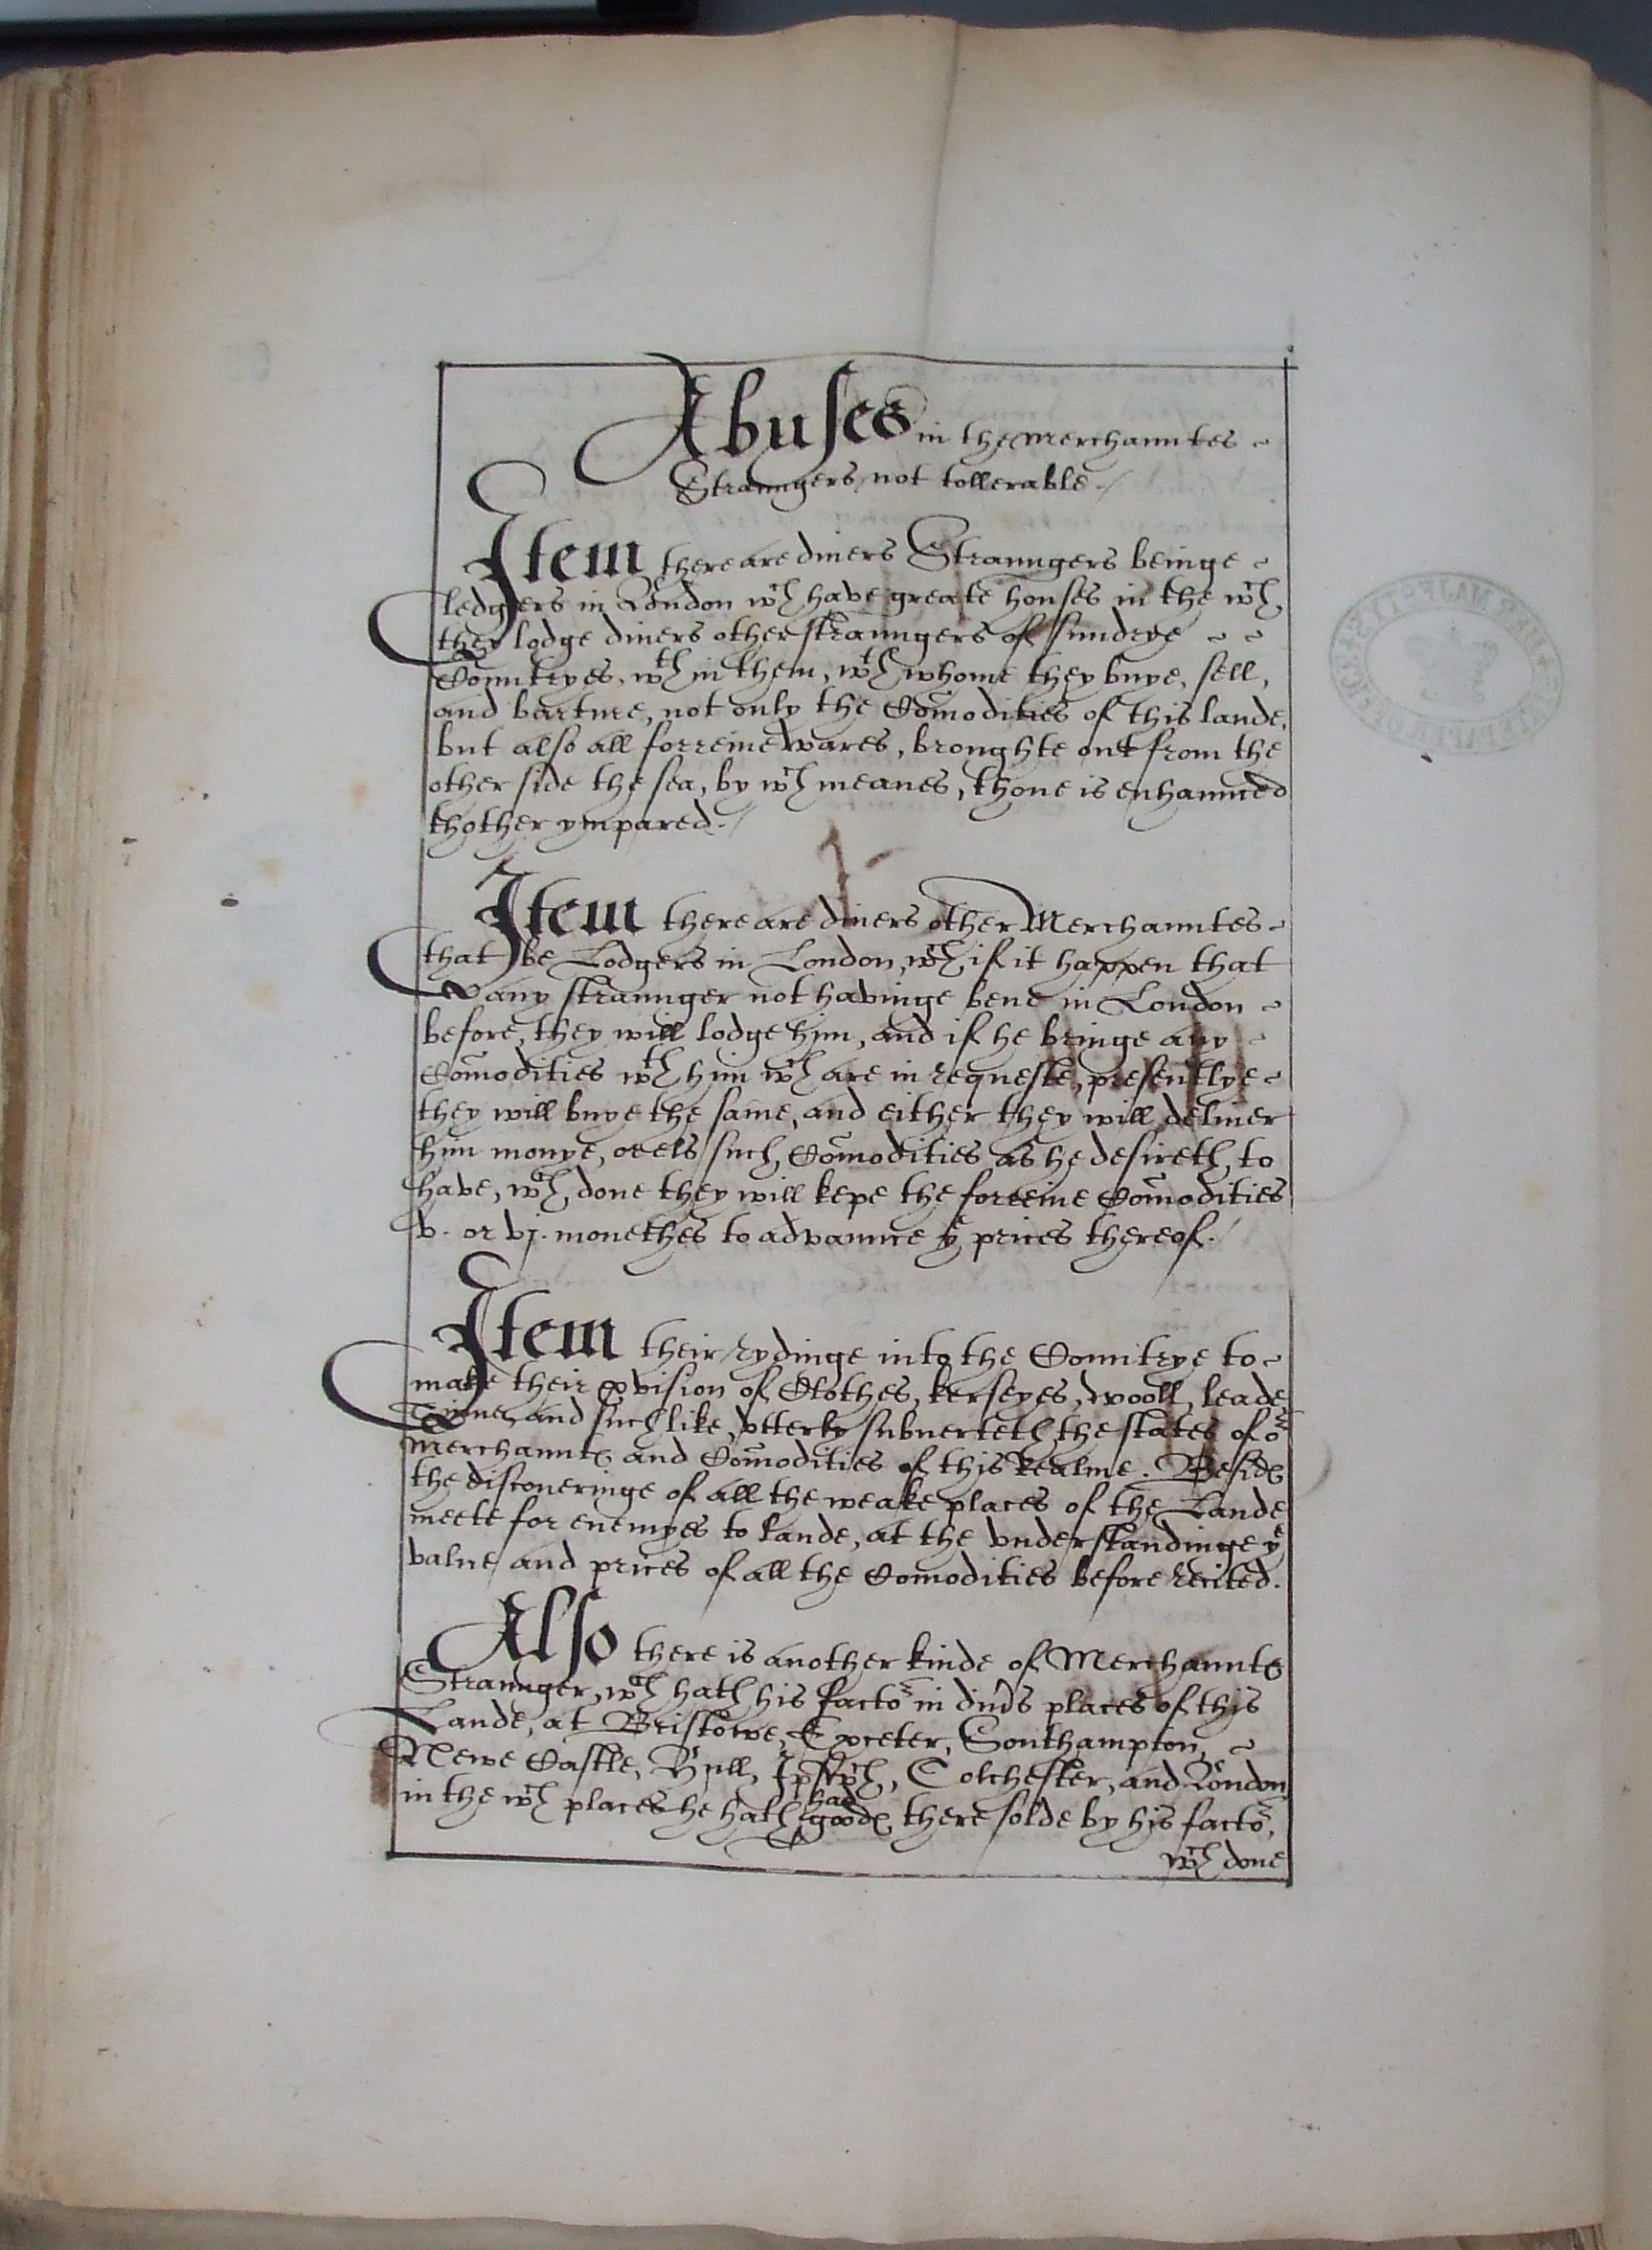 Abuses in the Merchanntes
Straungers not tollerable.
Item there are diuers Straungers beinge
ledgers in London wch have greate houses in the wch
they lodge diuers other straungers of sundrye
Countryes, wth in them, wth whome they buye, sell,
and barture, not only the Comodities of this lande,
but also all forreine wares, broughte out from the
other side the sea, by wch meanes, thone is enhaunced
thother ympared.
Item there are diuers other Merchanntes
that be Lodgers in London, wch if it happen that
any straunger not havinge bene in London
before, they will lodge him, and if he bringe any
Comodities wth him wch are in requeste, presentlye
they will buye the same, and either they will deliuer
him monye, or els such Comodities as he desireth to
have, wch done they will kepe the forreine Comodities
v. or vj. monethes to advaunce ye prices thereof.
Item their rydinge into the Countrye to
make their pvision of Clothes, kerseyes, wooll, leade,
Tinne, and such like, vtterly subuerteth the states of or
Merchauntes and Comodities of this Realme. Besides
the discoueringe of all the weake places of the Lande
meete for enemyes to lande, at the vnderstandinge ye
value and prices of all the Comodities before recited.
Also there is another kinde of Merchauntes
Straunger, wch hath his factor in divers places of this
Lande, at Bristowe, Exceter, Southampton,
Newe Castle, Hull, Ipswch, Colchester, and London
in the wch places he hath had goodes there solde by his factor,
wch done